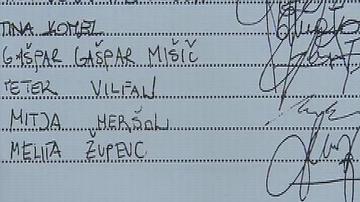 TINA KOMEL
GAŠPAR GAŠPAR MIŠIČ
PETER VILFAN
MITJA MERŠOL
MELITA ŽUPEVC